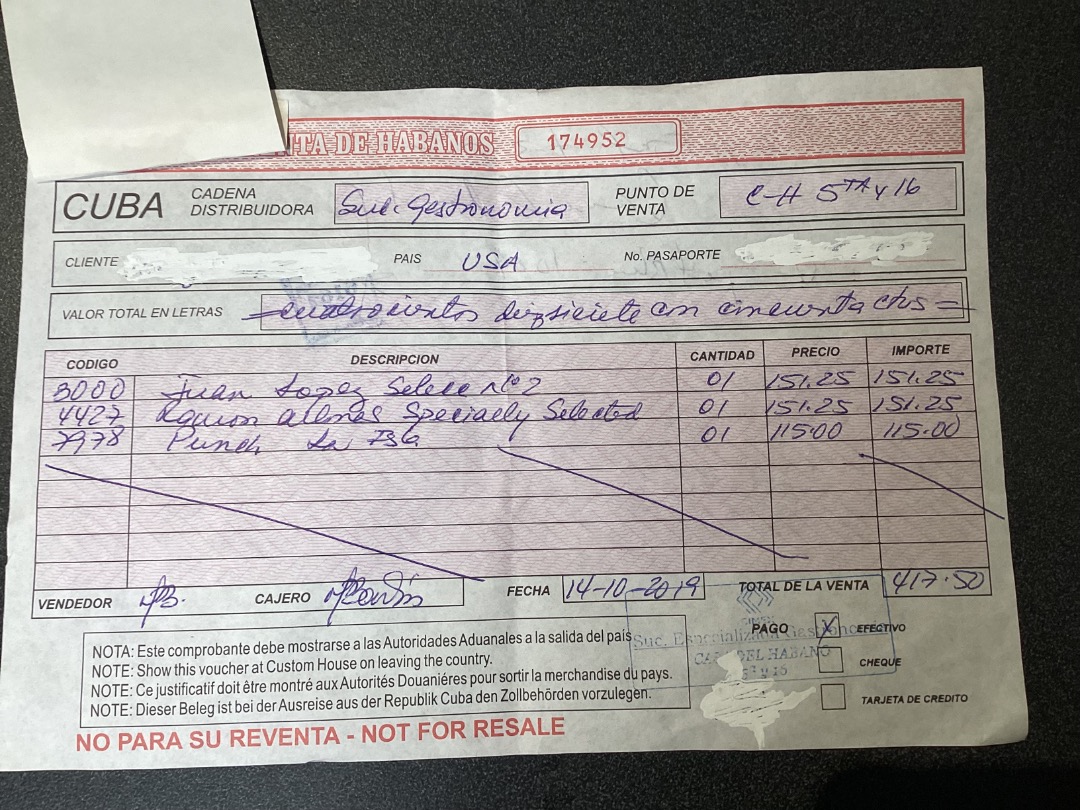 NTA DE HABANOS 174952
CUBA CADENA DISTRIBUIDORA Suc. Gastronomia PUNTO DE VENTA C-H 5TA y 16
CLIENTE PAIS USA No. PASAPORTE
VALOR TOTAL EN LETRAS cuatrocientos diecisiete con cincuenta ctvs =
CODIGO DESCRIPCION CANTIDAD PRECIO IMPORTE
3000 Juan Lopez Selecc Nº 2 01 151.25 151.25
4427 Ramon Allones Specially Selected 01 151.25 151.25
7978 Punch La Isla 01 115.00 115.00
VENDEDOR CAJERO FECHA 14-10-2019 TOTAL DE LA VENTA 417.50
PAGO X EFECTIVO
CHEQUE
TARJETA DE CREDITO
Suc. Especializada Gastronomia
CASA DEL HABANO
5ª y 16
NOTA: Este comprobante debe mostrarse a las Autoridades Aduanales a la salida del país
NOTE: Show this voucher at Custom House on leaving the country.
NOTE: Ce justificatif doit être montré aux Autorités Douaniéres pour sortir la merchandise du pays.
NOTE: Dieser Beleg ist bei der Ausreise aus der Republik Cuba den Zollbehörden vorzulegen.
NO PARA SU REVENTA - NOT FOR RESALE